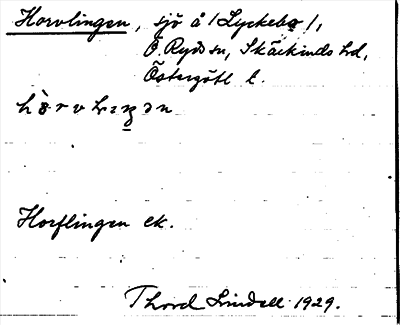 Horvlingen, sjö å /Lyckebo/,
Ö. Ryds sn, Skärkinds hd,
Östergötl l.
Horflingen ek.
Thord Lindell 1929.